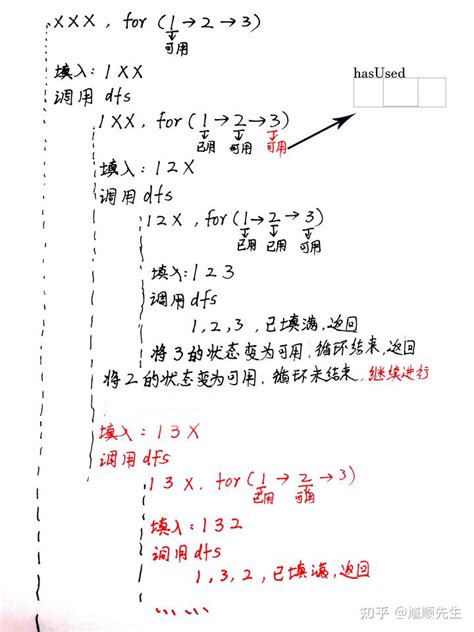 XXX, for (1→2→3)
可用
填入:1XX
调用 dfs
hasUsed
1XX, for(1→2→3)
已用 可用 可用
填入:12X
调用 dfs
12X, for(1→2→3)
已用 已用 可用
填入:123
调用 dfs
1,2,3,已填满,返回
将3的状态变为可用,循环结束,返回
将2的状态变为可用,循环未结束,继续进行
填入:13X
调用 dfs
13X, for(1→2→3)
已用 可用
填入:132
调用 dfs
1,3,2,已填满,返回
......
知乎 @道顺先生